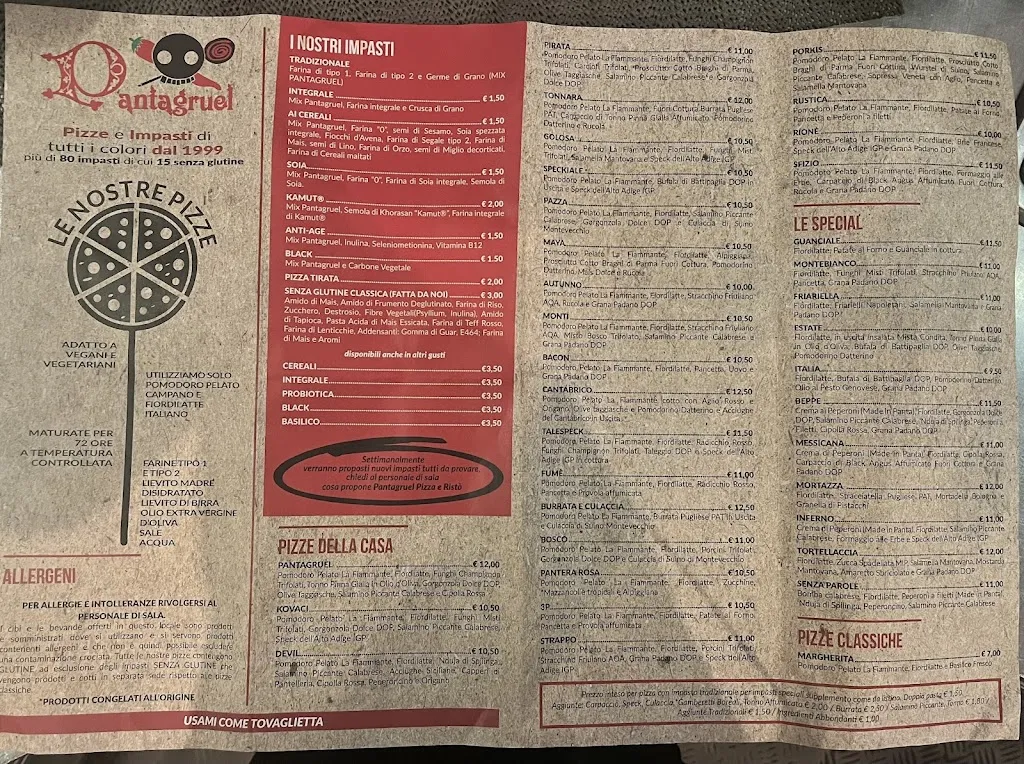 Pantagruel
Pizze e Impasti di
tutti i colori dal 1999
più di 80 impasti di cui 15 senza glutine
LE NOSTRE PIZZE
ADATTO A
VEGANI E
VEGETARIANI
UTILIZZIAMO SOLO
POMODORO PELATO
CAMPANO E
FIORDILATTE
ITALIANO
MATURATE PER
72 ORE
A TEMPERATURA
CONTROLLATA
FARINE TIPO 1
E TIPO 2
LIEVITO MADRE
DISIDRATATO
LIEVITO DI BIRRA
OLIO EXTRA VERGINE
D'OLIVA
SALE
ACQUA
ALLERGENI
PER ALLERGIE E INTOLLERANZE RIVOLGERSI AL
PERSONALE DI SALA.
I cibi e le bevande offerti in questo locale sono prodotti
e somministrati dove si utilizzano e si servono prodotti
contenenti allergeni e che non è quindi possibile escludere
una contaminazione crociata. Tutte le nostre pizze contengono
GLUTINE, ad esclusione degli impasti SENZA GLUTINE che
vengono prodotti e cotti in separata sede rispetto alle pizze
classiche.
*PRODOTTI CONGELATI ALL'ORIGINE
USAMI COME TOVAGLIETTA
I NOSTRI IMPASTI
TRADIZIONALE
Farina di tipo 1, Farina di tipo 2 e Germe di Grano (MIX
PANTAGRUEL)
INTEGRALE € 1,50
Mix Pantagruel, Farina integrale e Crusca di Grano
AI CEREALI € 1,50
Mix Pantagruel, Farina "0", semi di Sesamo, Soia spezzata
integrale, Fiocchi d'Avena, Farina di Segale tipo 2, Farina di
Mais, semi di Lino, Farina di Orzo, semi di Miglio decorticati,
Farina di Cereali maltati
SOIA € 1,50
Mix Pantagruel, Farina "0", Farina di Soia integrale, Semola di
Soia.
KAMUT® € 2,00
Mix Pantagruel, Semola di Khorasan "Kamut®", Farina integrale
di Kamut®
ANTI-AGE € 1,50
Mix Pantagruel, Inulina, Seleniometionina, Vitamina B12
BLACK € 1,50
Mix Pantagruel e Carbone Vegetale
PIZZA TIRATA € 2,00
SENZA GLUTINE CLASSICA (FATTA DA NOI) € 3,00
Amido di Mais, Amido di Frumento Deglutinato, Farina di Riso,
Zucchero, Destrosio, Fibre Vegetali(Psyllium, Inulina), Amido
di Tapioca, Pasta Acida di Mais Essicata, Farina di Teff Rosso,
Farina di Lenticchie, Addensanti: Gomma di Guar, E464; Farina
di Mais e Aromi
disponibili anche in altri gusti
CEREALI €3,50
INTEGRALE €3,50
PROBIOTICA €3,50
BLACK €3,50
BASILICO €3,50
Settimanalmente
verranno proposti nuovi impasti tutti da provare,
chiedi al personale di sala
cosa propone Pantagruel Pizza e Ristò
PIZZE DELLA CASA
PANTAGRUEL € 12,00
Pomodoro Pelato La Fiammante, Fiordilatte, Funghi Champignon
Trifolati, Tonno Pinna Gialla in Olio d'Oliva, Gorgonzola Dolce DOP,
Olive Taggiasche, Salamino Piccante Calabrese e Cipolla Rossa
KOVACI € 10,50
Pomodoro Pelato La Fiammante, Fiordilatte, Funghi Misti
Trifolati, Gorgonzola Dolce DOP, Salamino Piccante Calabrese,
Speck dell'Alto Adige IGP
DEVIL € 10,50
Pomodoro Pelato La Fiammante, Fiordilatte, Nduia di Spilinga,
Salamino Piccante Calabrese, Acciughe Siciliane, Capperi di
Pantelleria, Cipolla Rossa, Peperoncino e Origano
PIRATA € 11,00
Pomodoro Pelato La Fiammante, Fiordilatte, Funghi Champignon
Trifolati, Carciofi Trifolati, Prosciutto Cotto Braghi di Parma,
Olive Taggiasche, Salamino Piccante Calabrese e Gorgonzola
Dolce DOP
TONNARA € 12,00
Pomodoro Pelato La Fiammante, Fuori Cottura Burrata Pugliese
PAT, Carpaccio di Tonno Pinna Gialla Affumicato, Pomodorino
Datterino e Rucola
GOLOSA € 10,50
Pomodoro Pelato La Fiammante, Fiordilatte, Funghi Misti
Trifolati, Salamella Mantovana e Speck dell'Alto Adige IGP
SPECKALE € 10,50
Pomodoro Pelato La Fiammante, Bufala di Battipaglia DOP in
Uscita e Speck dell'Alto Adige IGP
PAZZA € 10,50
Pomodoro Pelato La Fiammante, Fiordilatte, Salamino Piccante
Calabrese, Gorgonzola Dolce DOP e Culaccia di Suino
Montevecchio
MAYA € 10,50
Pomodoro Pelato La Fiammante, Fiordilatte, Alpiggiana,
Prosciutto Cotto Braghi di Parma Fuori Cottura, Pomodorino
Datterino, Mais Dolce e Rucola
AUTUNNO € 10,00
Pomodoro Pelato La Fiammante, Fiordilatte, Stracchino Friuliano
AQA, Rucola e Grana Padano DOP
MONTI € 10,50
Pomodoro Pelato La Fiammante, Fiordilatte, Stracchino Friuliano
AQA, Misto Bosco Trifolato, Salamino Piccante Calabrese e
Grana Padano DOP
BACON € 10,50
Pomodoro Pelato La Fiammante, Fiordilatte, Pancetta, Uovo e
Grana Padano DOP
CANTABRICO € 12,50
Pomodoro Pelato La Fiammante cotto con Aglio Rosso e
Origano, Olive taggiasche e Pomodorino Datterino e Acciughe
del Cantabrico in Uscita
TALESPECK € 11,50
Pomodoro Pelato La Fiammante, Fiordilatte, Radicchio Rosso,
Funghi Champignon Trifolati, Taleggio DOP e Speck dell'Alto
Adige IGP in cottura
FUMÉ € 11,00
Pomodoro Pelato La Fiammante, Fiordilatte, Radicchio Rosso,
Pancetta e Provola affumicata
BURRATA E CULACCIA € 12,50
Pomodoro Pelato La Fiammante, Burrata Pugliese PAT in Uscita
e Culaccia di Suino Montevecchio
BOSCO € 11,00
Pomodoro Pelato La Fiammante, Fiordilatte, Porcini Trifolati,
Gorgonzola Dolce DOP e Culaccia di Suino Montevecchio
PANTERA ROSA € 10,50
Pomodoro Pelato La Fiammante, Fiordilatte, Zucchine,
*Mazzancolle tropicali e Alpiggiana
3P € 10,50
Pomodoro Pelato La Fiammante, Fiordilatte, Patate al Forno,
Pancetta e Provola affumicata
STRAPPO € 11,00
Pomodoro Pelato La Fiammante, Fiordilatte, Porcini Trifolati,
Stracchino Friuliano AQA, Grana Padano DOP e Speck dell'Alto
Adige IGP
PORKIS € 11,50
Pomodoro Pelato La Fiammante, Fiordilatte, Prosciutto Cotto
Braghi di Parma Fuori Cottura, Wurstel di Suino, Salamino
Piccante Calabrese, Sopressa Veneta con Aglio, Pancetta e
Salamella Mantovana
RUSTICA € 10,50
Pomodoro Pelato La Fiammante, Fiordilatte, Patate al Forno,
Pancetta e Peperoni a filetti
RIONE € 10,50
Pomodoro Pelato La Fiammante, Fiordilatte, Brie Francese,
Speck dell'Alto Adige IGP e Grana Padano DOP
SFIZIO € 11,50
Pomodoro Pelato La Fiammante, Fiordilatte, Formaggio alle
Erbe, Carpaccio di Black Angus Affumicato Fuori Cottura,
Rucola e Grana Padano DOP
LE SPECIAL
GUANCIALE € 11,50
Fiordilatte, Patate al Forno e Guanciale in cottura
MONTEBIANCO € 11,00
Fiordilatte, Funghi Misti Trifolati, Stracchino Friuliano AQA,
Pancetta, Grana Padano DOP
FRIARIELLA € 11,00
Fiordilatte, Friarielli Napoletani, Salamella Mantovana e Grana
Padano DOP
ESTATE € 10,00
Fiordilatte, in uscita Insalata Mista Condita, Tonno Pinna Gialla
in Olio d'Oliva, Bufala di Battipaglia DOP, Olive Taggiasche,
Pomodorino Datterino
ITALIA € 9,50
Fiordilatte, Bufala di Battipaglia DOP, Pomodorino Datterino,
Olio al Pesto Genovese, Grana Padano DOP
BEPPE € 11,50
Crema di Peperoni (Made In Panta), Fiordilatte, Gorgonzola Dolce
DOP, Salamino Piccante Calabrese, Nduia di Spilinga, Peperoni a
Filetti, Cipolla Rossa, Grana Padano DOP
MESSICANA € 11,00
Crema di Peperoni (Made In Panta), Fiordilatte, Cipolla Rossa,
Carpaccio di Black Angus Affumicato Fuori Cottura e Grana
Padano DOP
MORTAZZA € 12,00
Fiordilatte, Stracciatella Pugliese PAT, Mortadella Bologna e
Granella di Pistacchi
INFERNO € 11,00
Crema di Peperoni (Made In Panta), Fiordilatte, Salamino Piccante
Calabrese, Formaggio alle Erbe e Speck dell'Alto Adige IGP
TORTELLACCIA € 12,00
Fiordilatte, Zucca Spadellata MIP, Salamella Mantovana, Mostarda
Mantovana, Amaretto Sbriciolato e Grana Padano DOP
SENZA PAROLE € 11,00
Bomba calabrese, Fiordilatte, Peperoni a filetti (Made in Panta),
Nduja di Spilinga, Peperoncino, Salamino Calabrese
PIZZE CLASSICHE
MARGHERITA € 7,00
Pomodoro Pelato La Fiammante, Fiordilatte e Basilico Fresco
Prezzo inteso per pizza con impasto tradizionale per impasti speciali supplemento come da listino. Doppia pasta € 1,50.
Aggiunte: Carpaccio, Speck, Culaccia, *Gamberetti Boreali, Tonno Affumicato € 2,00 / Burrata € 2,80 / Salamino Piccante, Tonno € 1,80 /
Aggiunte Tradizionali € 1,50 / Ingredienti Abbondanti € 1,00